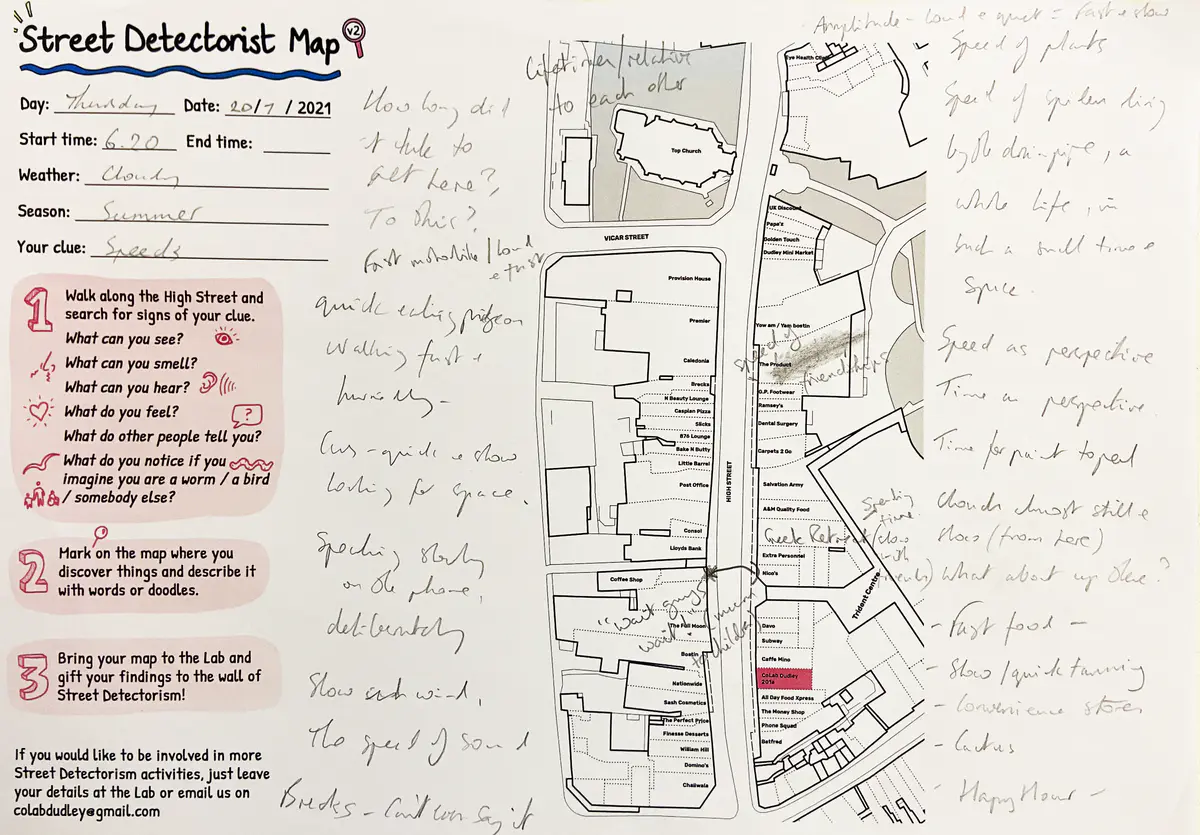 Street Detectorist Map v2
Day: Thursday Date: 20/7/2021
Start time: 6.20 End time:
Weather: Cloudy
Season: Summer
Your clue: Speeds
1
Walk along the High Street and
search for signs of your clue.
What can you see?
What can you smell?
What can you hear?
What do you feel?
?
What do other people tell you?
What do you notice if you
imagine you are a worm / a bird
/ somebody else?
2
Mark on the map where you
discover things and describe it
with words or doodles.
3
Bring your map to the Lab and
gift your findings to the wall of
Street Detectorism!
If you would like to be involved in more
Street Detectorism activities, just leave
your details at the Lab or email us on
colabdudley@gmail.com
How long did
it take to
get here?,
To this?
Fast motorbike / loud
& fast
quick eating pigeon
Walking fast &
hurriedly -
Cars - quick & slow
looking for space.
Speaking slowly
on the phone,
deliberately
Slow wind,
The speed of sound
Brecks - Can't even say it
Lifetimes / relative
to each other
Top Church
VICAR STREET
Provision House
Premier
Caledonia
Brecks
N Beauty Lounge
Caspian Pizza
Slicks
876 Lounge
Bake N Butty
Little Barrel
Post Office
Consol
Lloyds Bank
Coffee Shop
The Full Moon
Bostin
Nationwide
Sash Cosmetics
The Perfect Price
Finesse Desserts
William Hill
Domino's
Chaiiwala
"wait guys
wait!" (mum
to children)
HIGH STREET
Eye Health Clinic
UK Discount
Pape's
Golden Touch
Dudley Mini Market
Yow am / Yam bostin
speed of
friendships
The Product
G.P. Footwear
Ramsey's
Dental Surgery
Carpets 2 Go
Salvation Army
A&M Quality Food
Greek Retreat (slow
Spending
time
with
friends)
Extra Personnel
Nico's
Trident Centre
Dave
Subway
Caffe Mino
CoLab Dudley
201a
All Day Food Xpress
The Money Shop
Phone Squad
Betfred
Amplitude - loud & quiet = fast & slow
Speed of plants
Speed of spiders living
by the drainpipe, a
whole life, in
such a small time &
space.
Speed as perspective
Time as perspective.
Time for paint to peel
Clouds almost still &
slow (from here)
What about up there?
- Fast food -
- Slow / quick tanning
- Convenience stores
- Cactus
- Happy Hour -